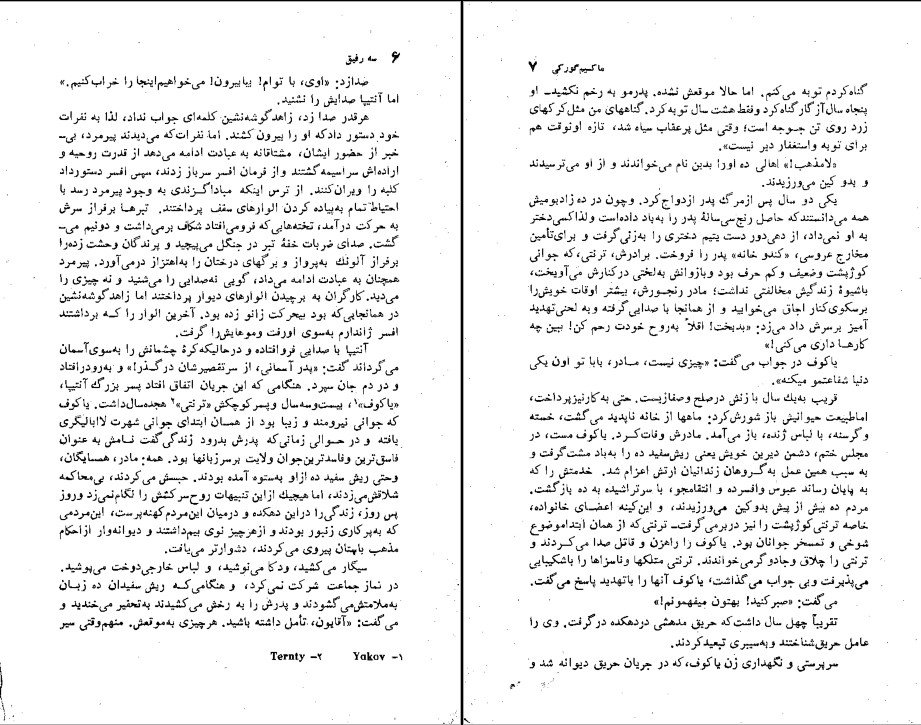 ۶ سه رفیق
صدازد: «اوی، با توام! بیابیرون! می‌خواهیم‌اینجا را خراب‌کنیم.»
اما آنتیپا صدایش را نشنید.
هرقدر صدا زد، زاهدگوشه‌نشین کلمه‌ای جواب نداد، لذا به نفرات
خود دستور دادکه او را بیرون کشند. اما نفرات‌که می‌دیدند پیرمرد، بی‌–
خبر از حضور ایشان، مشتاقانه به عبادت ادامه می‌دهد از قدرت روحیه و
اراده‌اش سراسیمه‌گشتند و از فرمان افسر سرباز زدند، سپس افسر دستورداد
کلبه را ویران‌کنند. از ترس اینکه مباداگزندی به وجود پیرمرد رسد با
احتیاط تمام به‌پیاده کردن الوارهای سقف پرداختند. تبرها برفراز سرش
به حرکت درآمد، تخته‌هایی‌که فرومی‌افتاد شکاف برمی‌داشت و دونیم می‌–
گشت. صدای ضربات خفهٔ تبر در جنگل می‌پیچید و پرندگان وحشت زده‌را
برفراز آلونك به‌پرواز و برگهای درختان را به‌اهتزاز درمی‌آورد. پیرمرد
همچنان به عبادت ادامه می‌داد، گویی نه‌صدایی را می‌شنید و نه چیزی را
می‌دید. کارگران به برچیدن الوارهای دیوار پرداختند اما زاهدگوشه‌نشین
در همانجایی‌که بود بیحرکت زانو زده بود. آخرین الوار را کـه برداشتند
افسر ژاندارم به‌سوی اورفت وموهایش‌را گرفت.
آنتیپا با صدایی فروافتاده و درحالیکه‌کرهٔ چشمانش را به‌سوی‌آسمان
می‌گرداند گفت: «پدر آسمانی، از سرتقصیرشان درگـذر!» و به‌رودرافتاد
و در دم جان سپرد. هنگامی که این جریان اتفاق افتاد پسر بزرگ آنتیپا،
«یاکوف»۱، بیست‌وسه‌سال وپسرکوچکش «ترنتی»۲ هجده‌سال‌داشت. یاکوف
که جوانی نیرومند و زیبا بود از همـان ابتدای جوانی شهرت لاابالیگری
یافته و در حـوالی زمانی‌که پدرش بدرود زندگی‌گفت نـامش به عنوان
فاسق‌ترین وفاسدترین‌جوان ولایت برسرزبانها بود. همه: مادر، همسایگان،
وحتی ریش سفید ده ازاو به‌ستوه آمده بودند. حبسش می‌کردند، بی‌محاکمه
شلاقش‌می‌زدند، اما هیچیك ازاین تنبیهات روح‌سرکشش را لگام‌نمی‌زد وروز
پس روز، زندگی‌را دراین دهکده و درمیان این‌مردم‌کهنه‌پرست، این‌مردمی
که به‌پرکاری زنبور بودند و ازهرچیز نوی بیم‌داشتند و دیوانه‌وار ازاحکام
مذهب باستان پیروی می‌کردند، دشوارتر می‌یافت.
سیگار می‌کشید، ودکا می‌نوشید، و لباس خارجی‌دوخت می‌پوشید.
در نماز جماعت شرکت نمی‌کرد، و هنگامی‌کـه ریش سفیدان ده زبـان
به‌ملامتش‌می‌گشودند و پدرش را به رخش می‌کشیدند به‌تحقیر می‌خندید و
می‌گفت: «آقایون، تأمل داشته باشید. هرچیزی به‌موقعش. منهم‌وقتی سیر
۱– Yakov ۲– Ternty
ماکسیم‌گورکی ۷
گناه‌کردم توبه می‌کنم. اما حالا موقعش نشده. پدرمو به رخم نکشید– او
پنجاه سال‌آزگار گناه‌کرد وفقط هشت سال توبه‌کرد. گناههای من مثل‌کرکهای
زرد روی تن جـوجه است؛ وقتی مثل پرعقاب سیاه شد، تازه اونوقت هم
برای توبه واستغفار دیر نیست».
«لامذهب!» اهالی ده اورا بدین نام می‌خواندند و از او می‌ترسیدند
و بدو کین می‌ورزیدند.
یکی دو سال پس ازمرگ پدر ازدواج‌کرد. وچون در ده زادبومیش
همه می‌دانستندکه حاصل رنج‌سی‌سالهٔ پدر را به‌باد داده‌است ولذاکسی‌دختر
به او نمی‌داد، از دهی‌دور دست یتیم دختری را به‌زنی‌گرفت و برای‌تأمین
مخارج عروسی، «کندو خانه» پدر را فروخت. برادرش، ترنتی،که جوانی
کوژپشت وضعیف وکم حرف بود وبازوانش به‌لختی درکنارش می‌آویخت،
باشیوهٔ زندگیش مخالفتی نداشت؛ مادر رنجـورش، بیشتر اوقات خویش‌را
برسکوی‌کنار اجاق می‌خوابید و از همانجا با صدایی‌گرفته وبه لحنی‌تهدید
آمیز برسرش داد می‌زد: «بدبخت! اقلاً به‌روح خودت رحم کن! ببین چه
کارهـا داری می‌کنی!»
یاکوف در جواب می‌گفت: «چیزی نیست، مـادر، بابا تو اون یکی
دنیا شفاعتمو میکنه».
قریب به‌یك سال با زنش درصلح وصفازیست. حتی به‌کارنیزپرداخت،
اماطبیعت حیوانیش باز شورش‌کرد: ماهها از خانه ناپدید می‌گشت، خسته
وگرسنه، با لباس ژنده، باز می‌آمد. مادرش وفات‌کـرد. یاکوف مست، در
مجلس ختم، دشمن دیرین خویش یعنی ریش‌سفید ده را به‌باد مشت‌گرفت و
به سبب همین عمل به‌گروهان زندانیان ارتش اعزام شد. خدمتش را که
به پایان رساند عبوس وافسرده و انتقامجو، با سرتراشیده به ده بازگشت.
مردم ده بیش از پیش بدوکین می‌ورزیدند، و این‌کینه اعضـای خانواده،
خاصه ترنتی‌کوژپشت را نیز دربرمی‌گرفت– ترنتی‌که از همان ابتداموضوع
شوخی و تمسخر جوانان بود. یاکوف را راهزن و قاتل صدا می‌کـردند و
ترنتی را چلاق وجادوگرمی‌خواندند. ترنتی متلکها وناسزاها را باشکیبایی
می‌پذیرفت وبی جواب می‌گذاشت، یاکوف آنها را باتهدید پاسخ می‌گفت.
می‌گفت: «صبرکنید! بهتون میفهمونم!»
تقریباً چهل سال داشت‌که حریق مدهشی دردهکده درگرفت. وی را
عامل حریق‌شناختند وبه‌سیبری تبعیدکردند.
سرپرستی و نگهداری زن یاکوف،که در جریان حریق دیوانه شد و